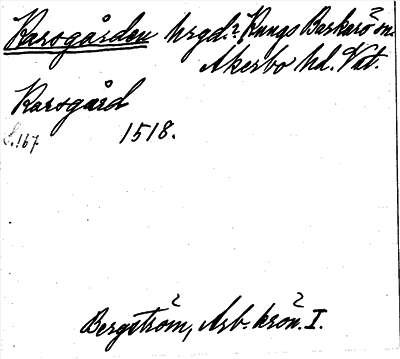 Karsgården hrgd.? Kungs Barkarö sn.
Åkerbo hd. Vstm.
Karsgård
S. 167 1518.
Bergström, Arb. krön. I.